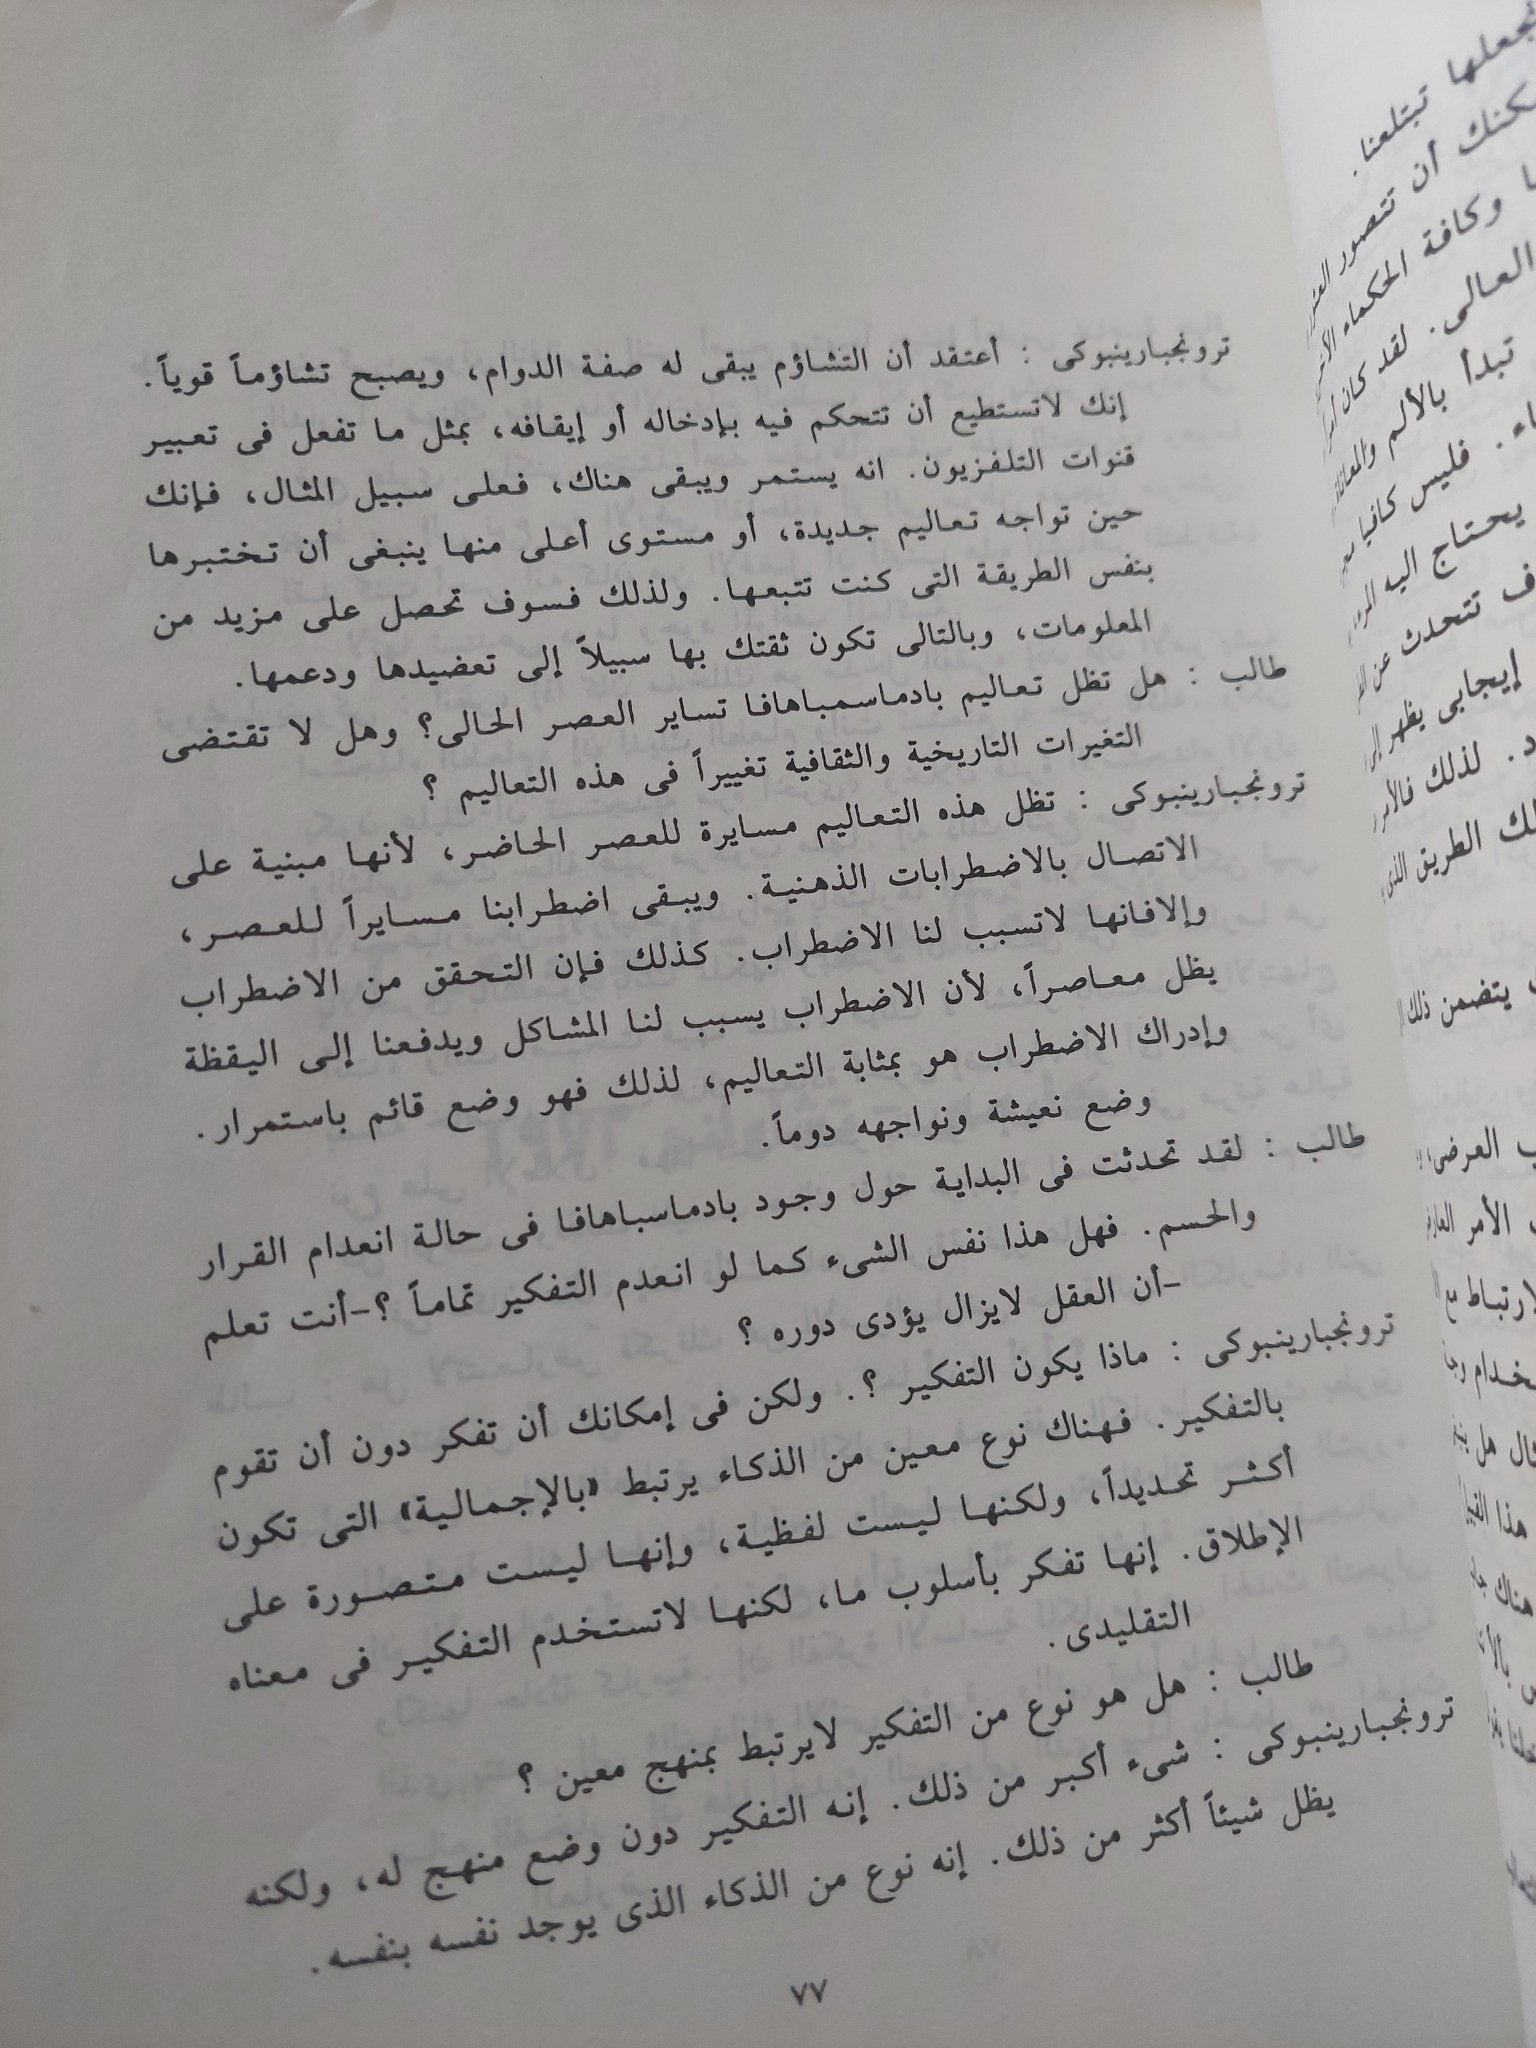 ترونجبارينبوكى : أعتقد أن التشاؤم يبقى له صفة الدوام، ويصبح تشاؤماً قوياً.
إنك لاتستطيع أن تتحكم فيه بإدخاله أو إيقافه، بمثل ما تفعل فى تعبير
قنوات التلفزيون. انه يستمر ويبقى هناك، فعلى سبيل المثال، فإنك
حين تواجه تعاليم جديدة، أو مستوى أعلى منها ينبغى أن تختبرها
بنفس الطريقة التى كنت تتبعها. ولذلك فسوف تحصل على مزيد من
المعلومات، وبالتالى تكون ثقتك بها سبيلاً إلى تعضيدها ودعمها.
طالب : هل تظل تعاليم بادماسمباهافا تساير العصر الحالى؟ وهل لا تقتضى
التغيرات التاريخية والثقافية تغييراً فى هذه التعاليم ؟
ترونجبارينبوكى : تظل هذه التعاليم مسايرة للعصر الحاضر، لأنها مبنية على
الاتصال بالاضطرابات الذهنية. ويبقى اضطرابنا مسايراً للعصر،
وإلافانها لاتسبب لنا الاضطراب. كذلك فإن التحقق من الاضطراب
يظل معاصراً، لأن الاضطراب يسبب لنا المشاكل ويدفعنا إلى اليقظة
وإدراك الاضطراب هو بمثابة التعاليم، لذلك فهو وضع قائم باستمرار.
وضع نعيشة ونواجهه دوماً.
طالب : لقد تحدثت فى البداية حول وجود بادماسباهافا فى حالة انعدام القرار
والحسم. فهل هذا نفس الشىء كما لو انعدم التفكير تماماً ؟-أنت تعلم
-أن العقل لايزال يؤدى دوره ؟
ترونجبارينبوكى : ماذا يكون التفكير ؟. ولكن فى إمكانك أن تفكر دون أن تقوم
بالتفكير. فهناك نوع معين من الذكاء يرتبط «بالإجمالية» التى تكون
أكثر تحديداً، ولكنها ليست لفظية، وإنها ليست متصورة على
الإطلاق. إنها تفكر بأسلوب ما، لكنها لاتستخدم التفكير فى معناه
التقليدى.
طالب : هل هو نوع من التفكير لايرتبط بمنهج معين ؟
ترونجبارينبوكى : شىء أكبر من ذلك. إنه التفكير دون وضع منهج له، ولكنه
يظل شيئاً أكثر من ذلك. إنه نوع من الذكاء الذى يوجد نفسه بنفسه.
٧٧
تبتلعنا.
أن تتصور
وكافة الحكماء
العالى. لقد كان
تبدأ بالألم
فليس كافيا
يحتاج اليه
تتحدث عن
إيجابى يظهر
لذلك
الطريق الذى
يتضمن ذلك
الأمر
مع
هل
هذا
هناك